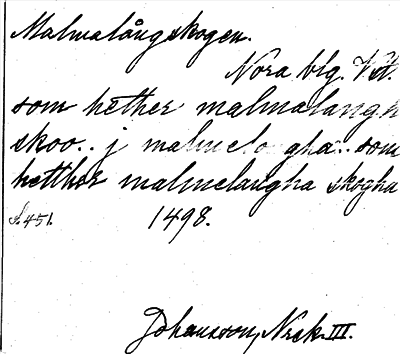 Malmalångskogen.
Nora blg. Vstl.
som hether malmalangh
skoo.. j malmelo gha.. som
hetther malmelangha skogha
s. 451. 1498.
Johansson, Nrck. III.